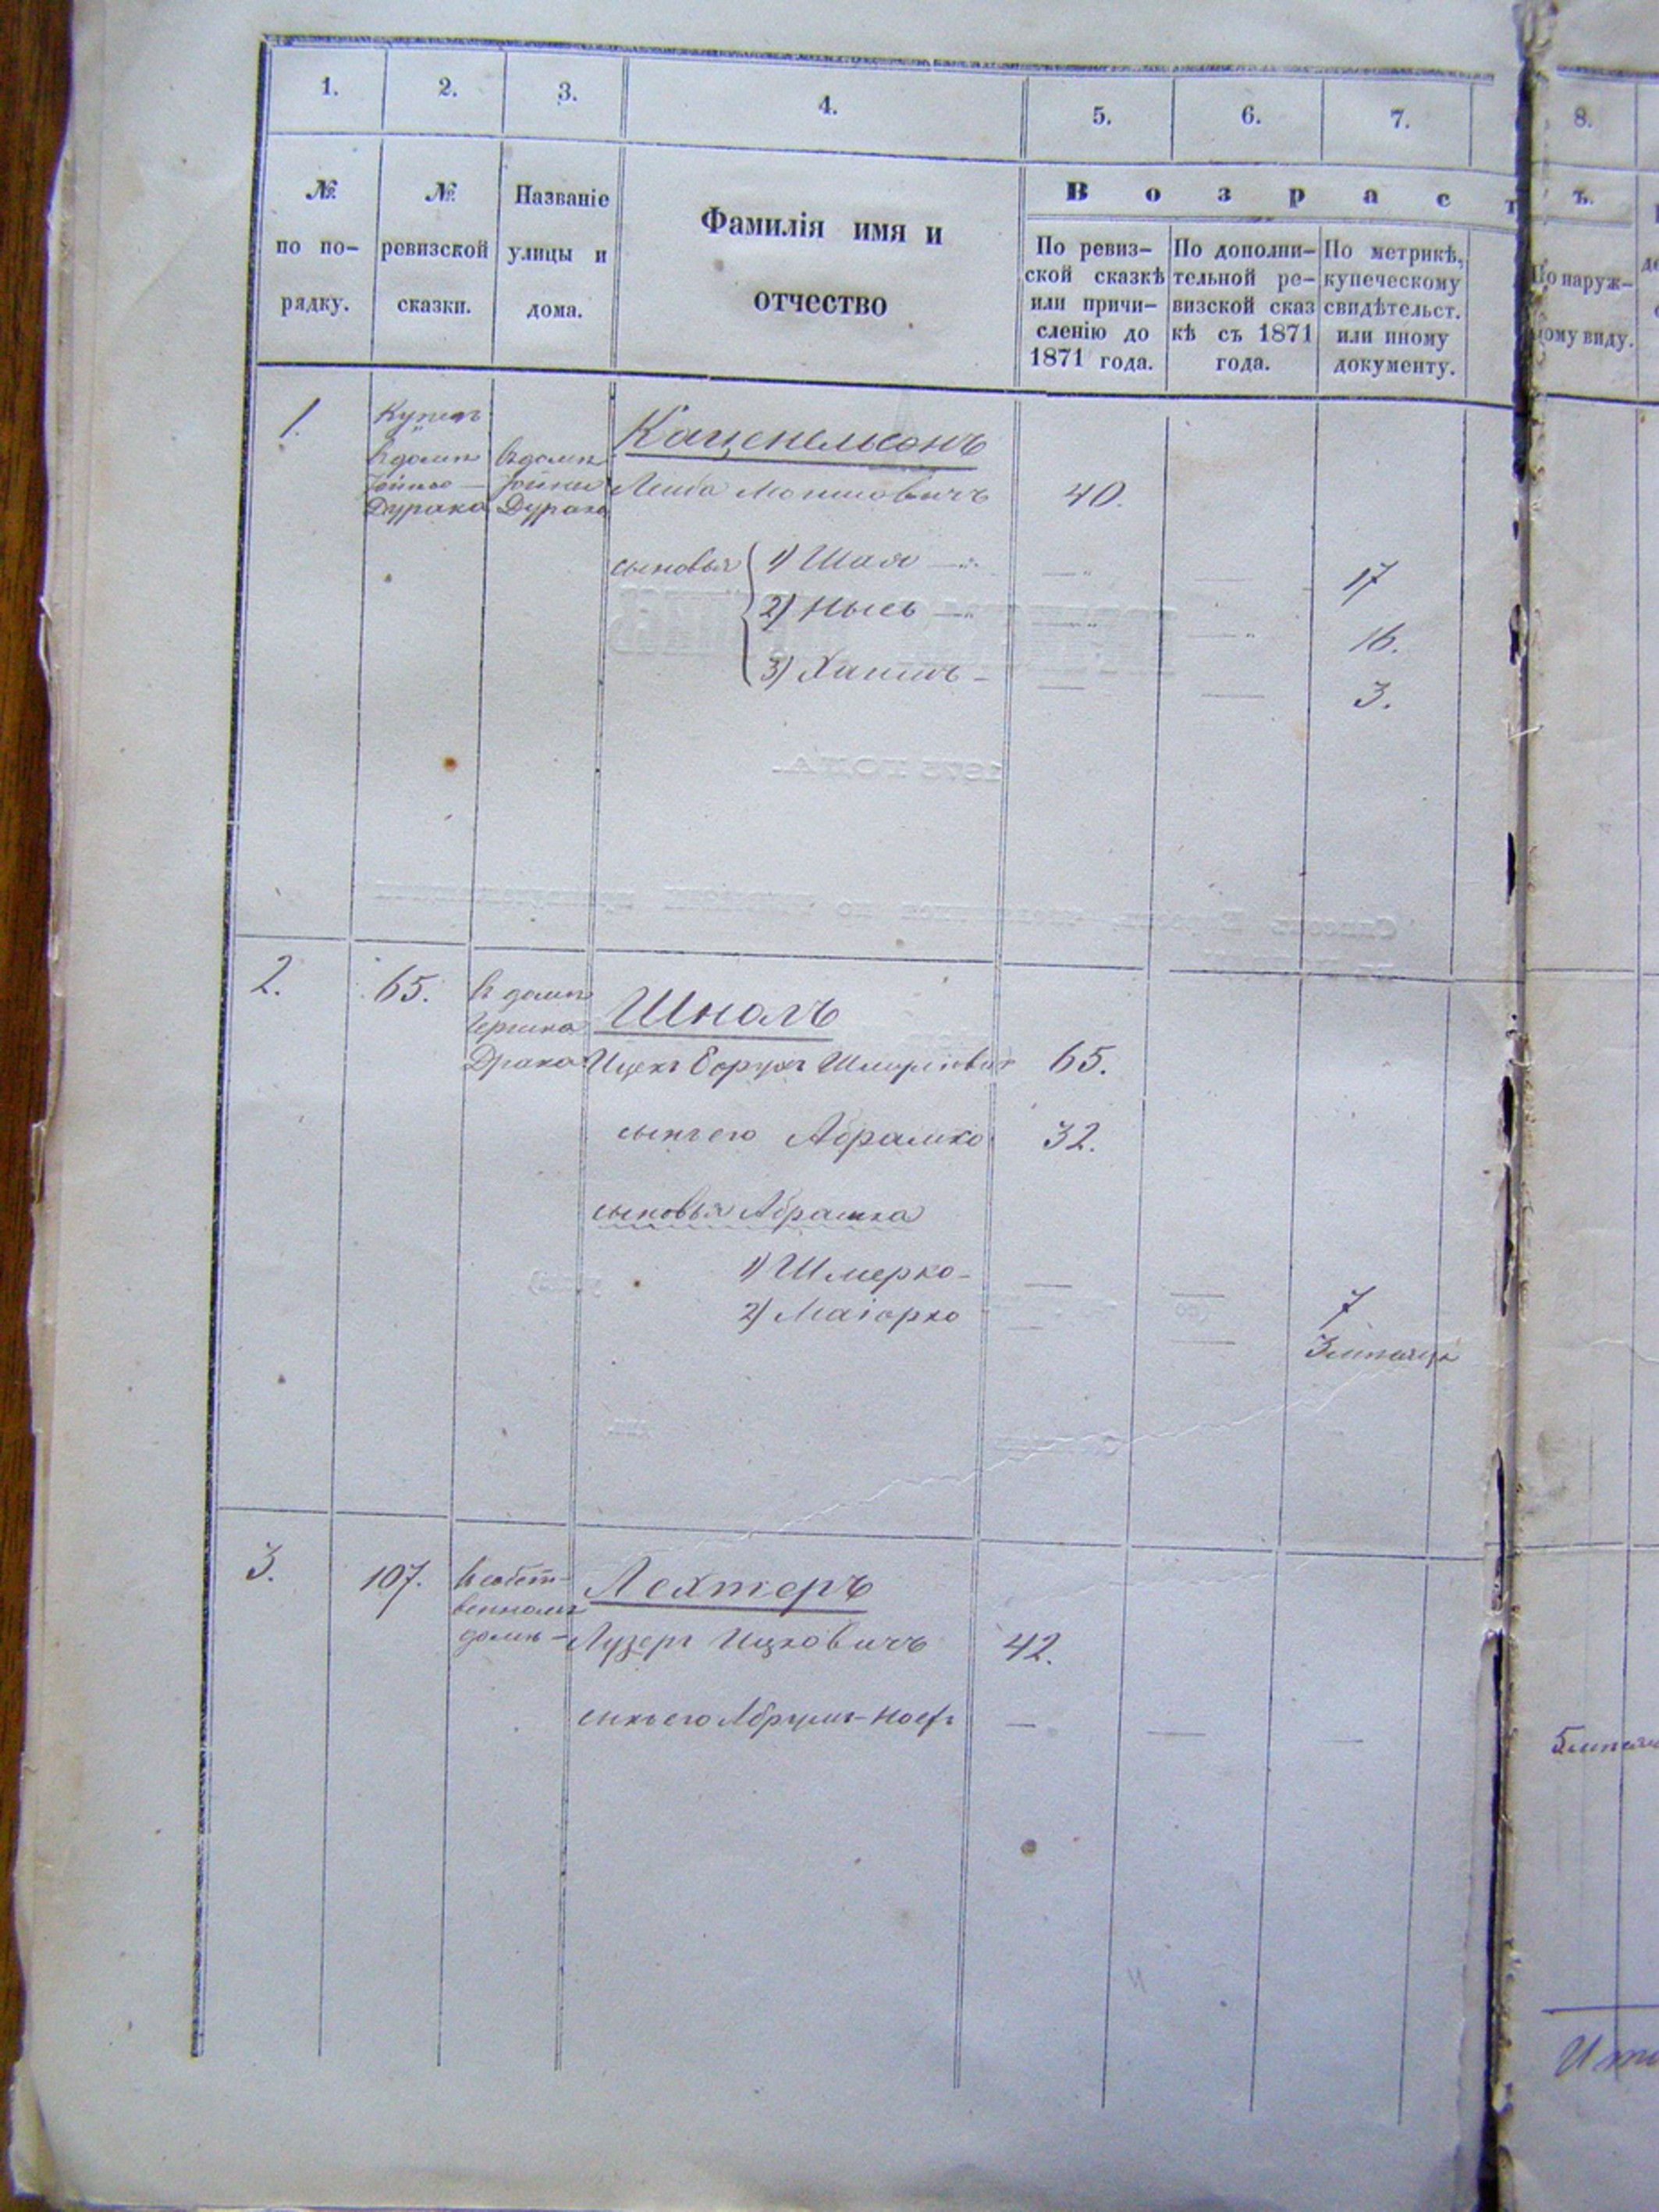 1. 2. 3. 4. 5. 6. 7. 8.
№ по по- рядку.
№ ревизской сказки.
Названіе улицы и дома.
Фамилія имя и отчество
В о з р а с т ъ.
По ревиз-
ской сказкѣ
или причи-
сленію до
1871 года.
По дополни-
тельной ре-
визской сказ
кѣ съ 1871
года.
По метрикѣ,
купеческому
свидѣтельст.
или иному
документу.
По наруж-
ному виду.
1. Купецъ
въ домѣ
Дурака
въ домѣ
Дурака
Каценельсонъ
Лейба Мошковичъ 40.
сыновья 1) Шая — — — 17
2) Нысь — — — 16.
3) Хаимъ — — — 3.
2. 65. въ домѣ
Шноль
Ицекъ Борухъ Шмулевичъ 65.
сынъ его Абрамко 32.
сыновья Абрамка
1) Шмерко — — — 7
2) Маіорко — — 3 мѣсяца
3. 107. въ собст-
венномъ
домѣ —
Лехтеръ
Лузеръ Ицковичъ 42.
сынъ его Абрумъ-Іосфъ — — —